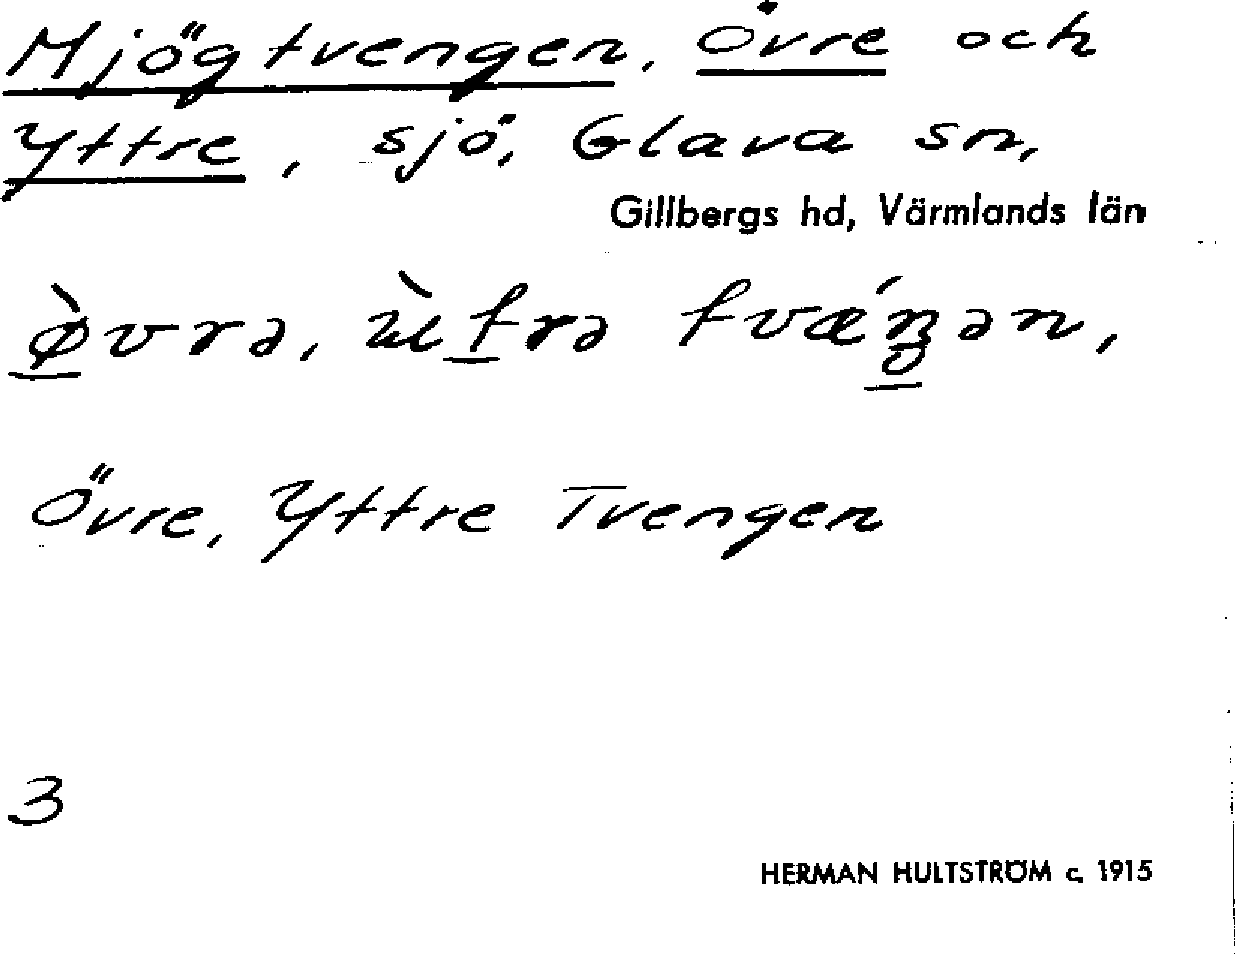 Mjögtvengen, Övre och
Yttre, sjö, Glava sn,
Gillbergs hd, Värmlands län
ø̀vrə, ùtrə tvǽŋən,
Övre, Yttre Tvengen
3
HERMAN HULTSTRÖM c. 1915